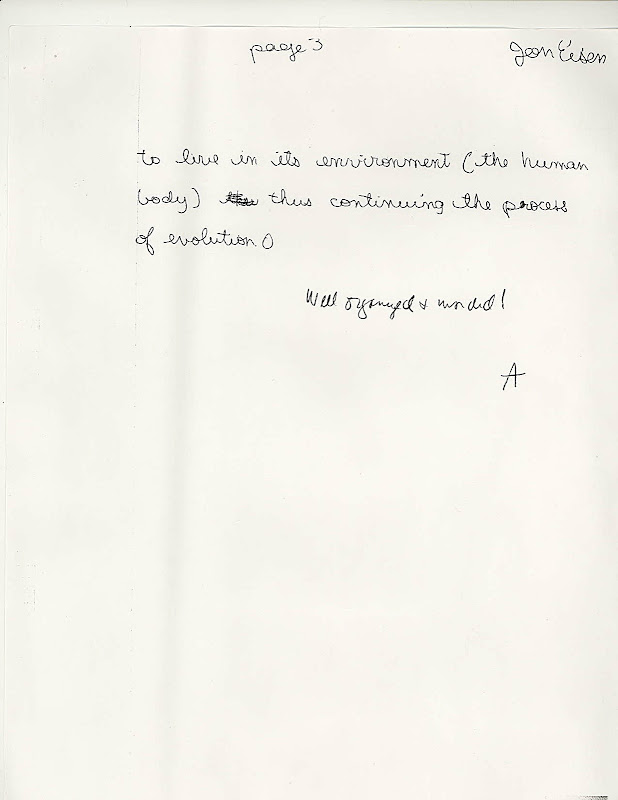 page 3
Jon Eisen
to live in its environment (the human
body) thus continuing the process
of evolution.
Well organized & worded!
A